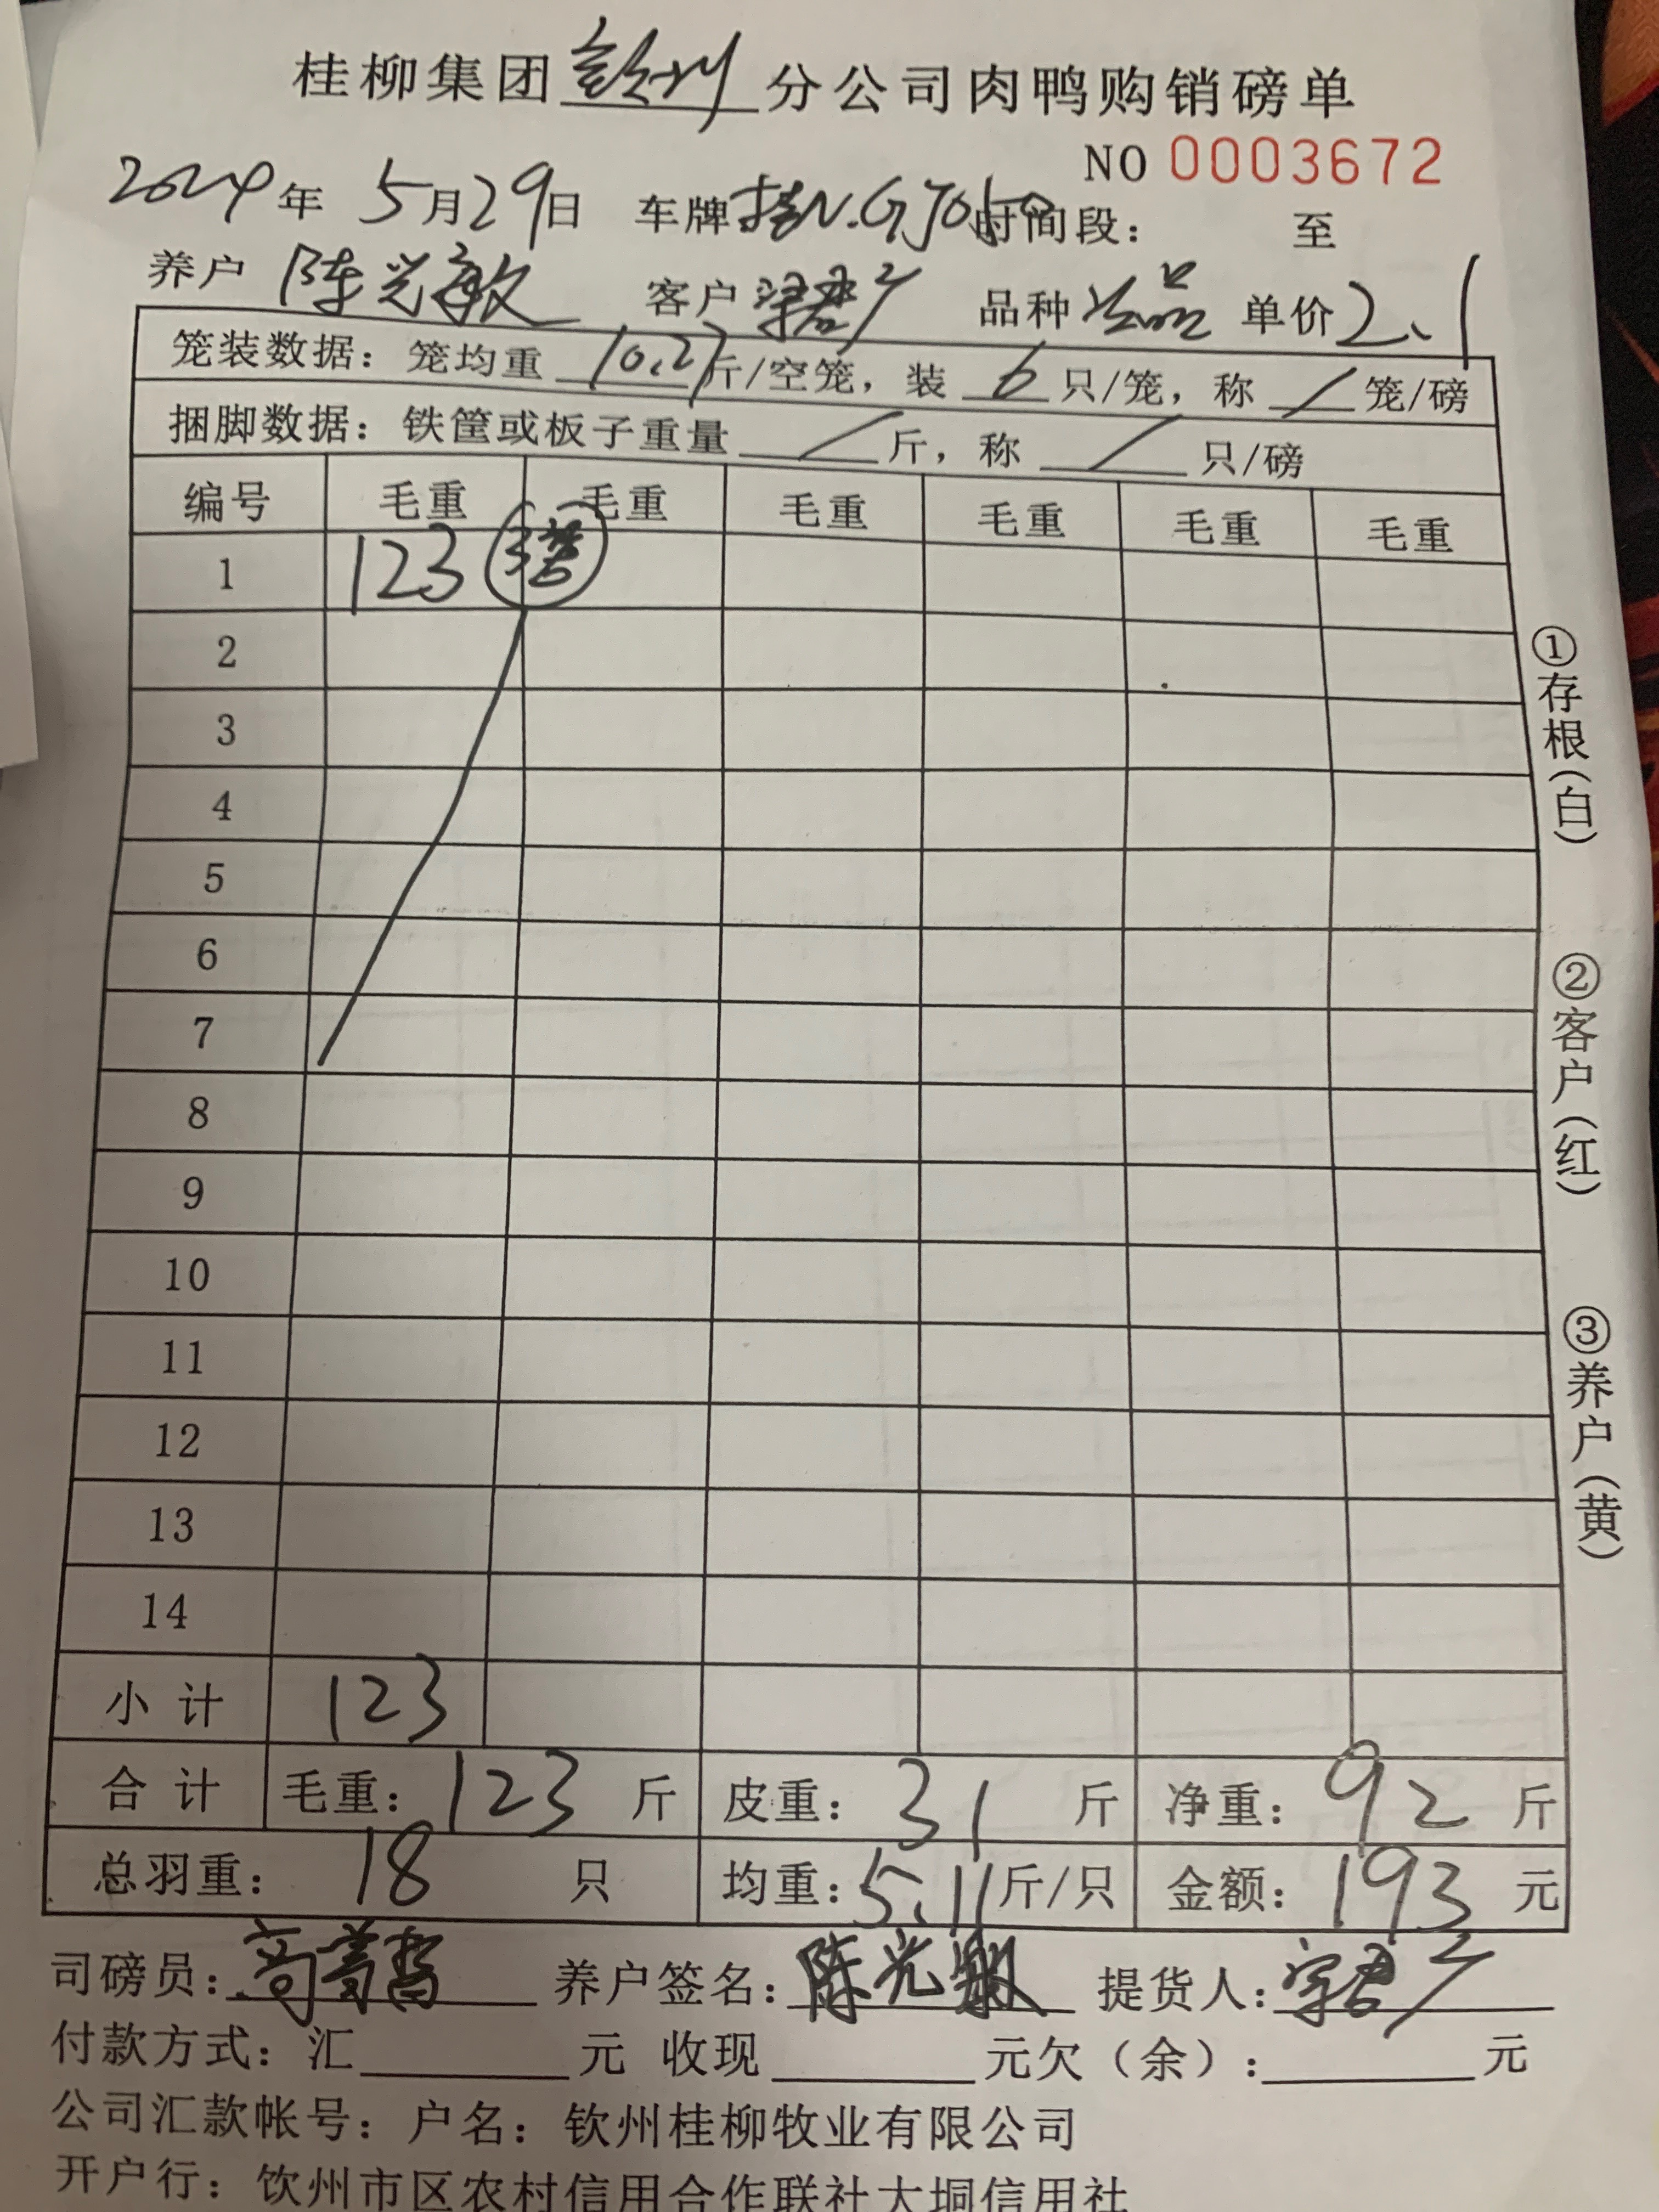 桂柳集团钦州分公司肉鸭购销磅单
NO 0003672
2024年 5月29日 车牌桂N.G 时间段： 至
养户 陈光敏 客户 品种 次品 单价2.1
笼装数据：笼均重 10.27斤/空笼，装 6 只/笼，称 / 笼/磅
捆脚数据：铁筐或板子重量 / 斤，称 / 只/磅
编号 毛重 毛重 毛重 毛重 毛重 毛重
1 123 3笼
2
3
4
5
6
7
8
9
10
11
12
13
14
小计 123
合计 毛重：123 斤 皮重：31 斤 净重：92 斤
总羽重：18 只 均重：5.11斤/只 金额：193 元
司磅员： 养户签名：陈光敏 提货人：
付款方式：汇 元 收现 元欠（余）： 元
公司汇款帐号：户名：钦州桂柳牧业有限公司
开户行：钦州市区农村信用合作联社大垌信用社
①存根（白）
②客户（红）
③养户（黄）